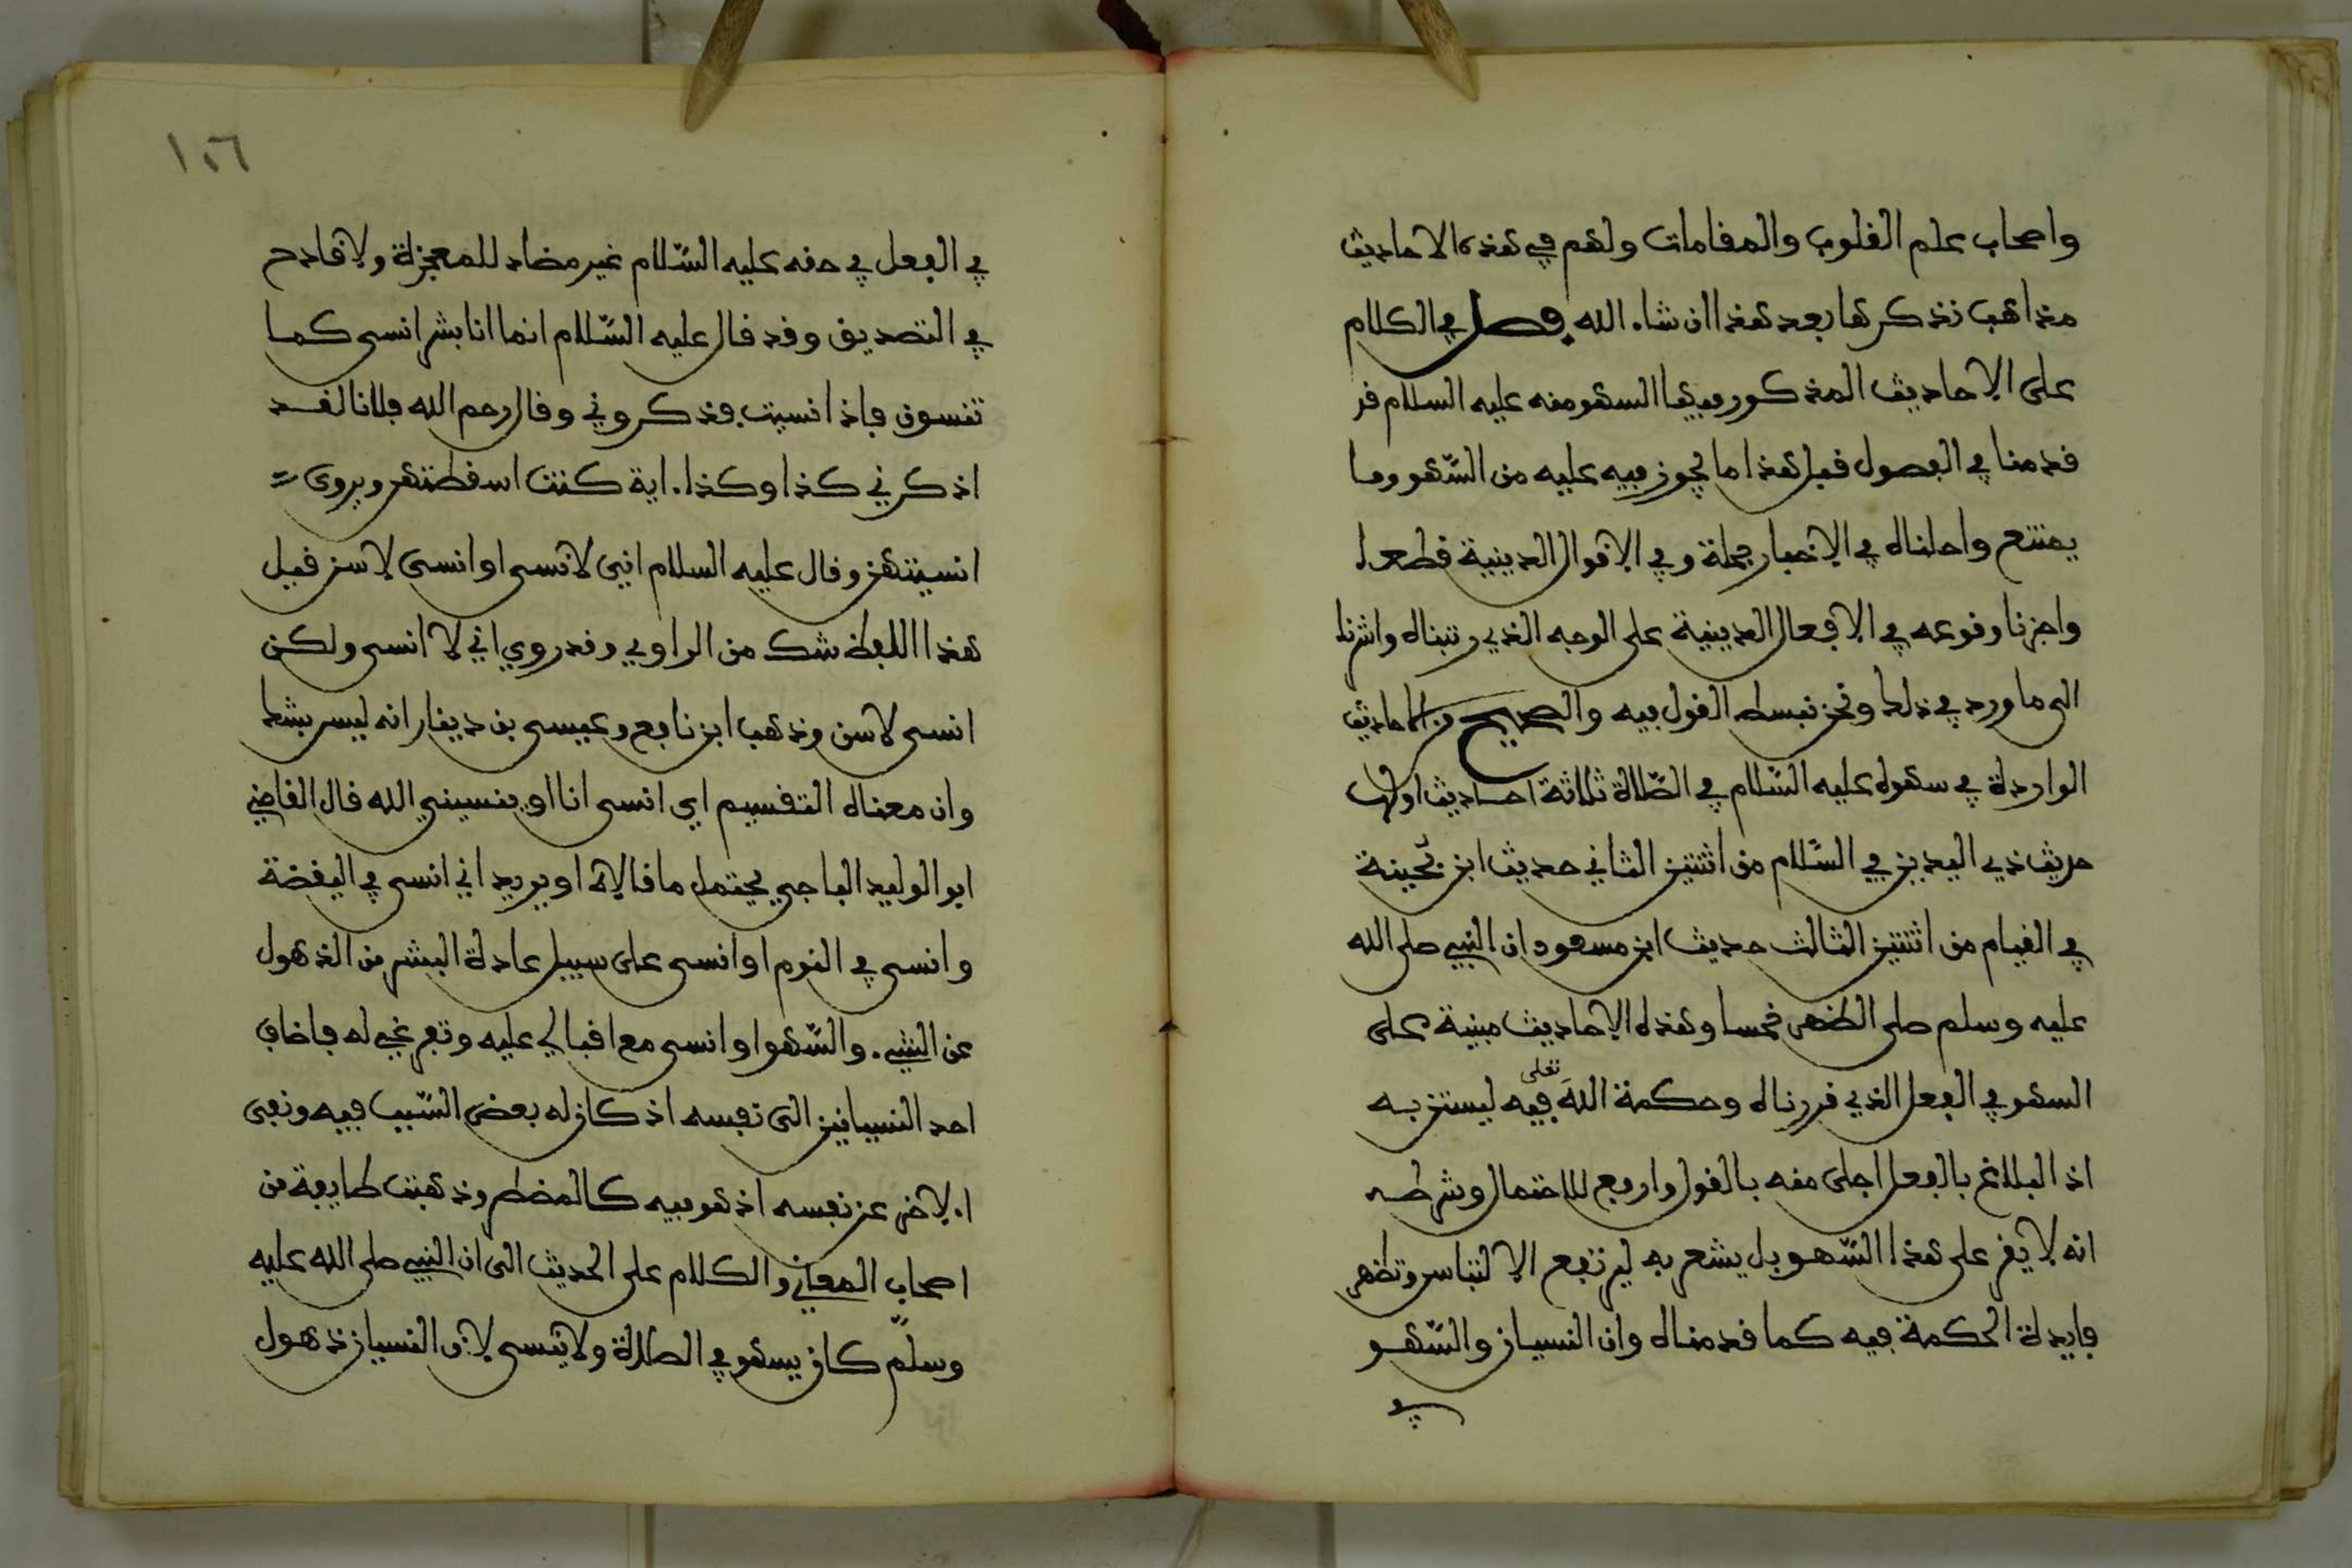 واصحاب علم القلوب والمقامات ولهم في هذه الاحاديث
مذاهب نذكرها بعد هذا ان شاء الله فصل في الكلام
على الاحاديث المذكور فيها السهو منه عليه السلام قد
قدمنا في الفصول قبل هذا ما يجوز فيه عليه من السّهو وما
يمتنع واحلناه في الاخبار جملة وفي الاقوال الدينية قطعا
واجزنا وقوعه في الافعال الدينية على الوجه الذي رتبناه واشرنا
الى ما ورد في ذلك ونحن نبسط القول فيه والصحيح من الاحاديث
الواردة في سهوه عليه السّلام في الصّلاة ثلاثة احاديث اولها
حديث ذي اليدين في السّلام من اثنتين الثاني حديث ابن بُحينة
في القيام من اثنتين الثالث حديث ابن مسعود ان النبي صلى الله
عليه وسلم صلى الظهر خمسا وهذه الاحاديث مبنية على
السهو في الفعل الذي قررناه وحكمة الله تعلى فيه ليستن به
اذ البلاغ بالفعل اجلى منه بالقول وارفع للاحتمال وشرطه
انه لا يقر على هذا السّهو بل يشعر به ليرتفع الالتباس وتظهر
فايدة الحكمة فيه كما قدمناه وان النسيان والسّهو
في
١٠٦
في الفعل في حقه عليه السّلام غير مضاد للمعجزة ولا قادح
في التصديق وقد قال عليه السّلام انما انا بشر انسى كما
تنسون فاذا نسيت فذكروني وقال رحم الله فلانا لقد
اذكرني كذا وكذا ءاية كنت اسقطتهن ويروى
انسيتهن وقال عليه السلام اني لانسى او انسى لاسن قيل
هذا اللفظ شك من الراوي وقد روي اني لا انسى ولكن
انسى لاسن وذهب ابن نافع وعيسى بن دينار انه ليس بشك
وان معناه التقسيم اي انسى انا او ينسيني الله قال القاضي
ابو الوليد الباجي يحتمل ما قالاه او يريد اني انسى في اليقضة
وانسى في النوم او انسى على سبيل عادة البشر من الذهول
عن الشيء والسّهو او انسى مع اقبالي عليه وتفرغي له فاضاف
احد النسيانين الى نفسه اذ كان له بعض السّبب فيه ونفى
الاخر عن نفسه اذ هو فيه كالمضطر وذهبت طايفة من
اصحاب المعاني والكلام على الحديث الى ان النبي صلى الله عليه
وسلّم كان يسهو في الصلاة ولا ينسى لان النسيان ذهول